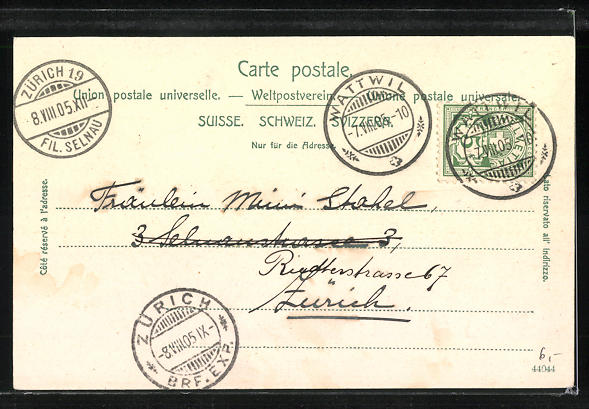 Carte postale.
Union postale universelle. — Weltpostverein. — Unione postale universale.
SUISSE. SCHWEIZ. SVIZZERA.
Nur für die Adresse.
ZÜRICH 19
-8.VIII.05.XII-
FIL. SELNAU
WATTWIL
-7.VIII.05.-10
WATTWIL
-7.VIII.05.-10
HELVETIA
5
Côté réservé à l'adresse.
Lato riservato all' indirizzo.
Fräulein Mini Stahel
3 Selnaustrasse 3,
67
Zürich.
ZÜRICH
-8.VIII.05.IX-
BRF. EXP.
6,-
44944